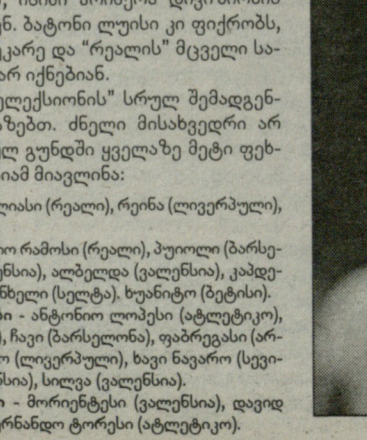 ნ. ბატონი ლუისი კი ფიქრობს,
კარე და “რეალის” მცველი სა-
არ იქნებიან.
ელექსიონის” სრულ შემადგენ-
აზებთ. ძნელი მისახვედრი არ
ულ გუნდში ყველაზე მეტი ფეხ-
იამ მიავლინა:
ლიასი (რეალი), რეინა (ლივერპული),
იო რამოსი (რეალი), პუიოლი (ბარსე-
ენსია), ალბელდა (ვალენსია), კაპდე-
ნხელი (სელტა). ხუანიტო (ბეტისი).
ბი - ანტონიო ლოპესი (ატლეტიკო),
), ჩავი (ბარსელონა), ფაბრეგასი (არ-
ო (ლივერპული), ხავი ნავარო (სევი-
ნსია), სილვა (ვალენსია).
ი - მორიენტესი (ვალენსია), დავიდ
ერნანდო ტორესი (ატლეტიკო).